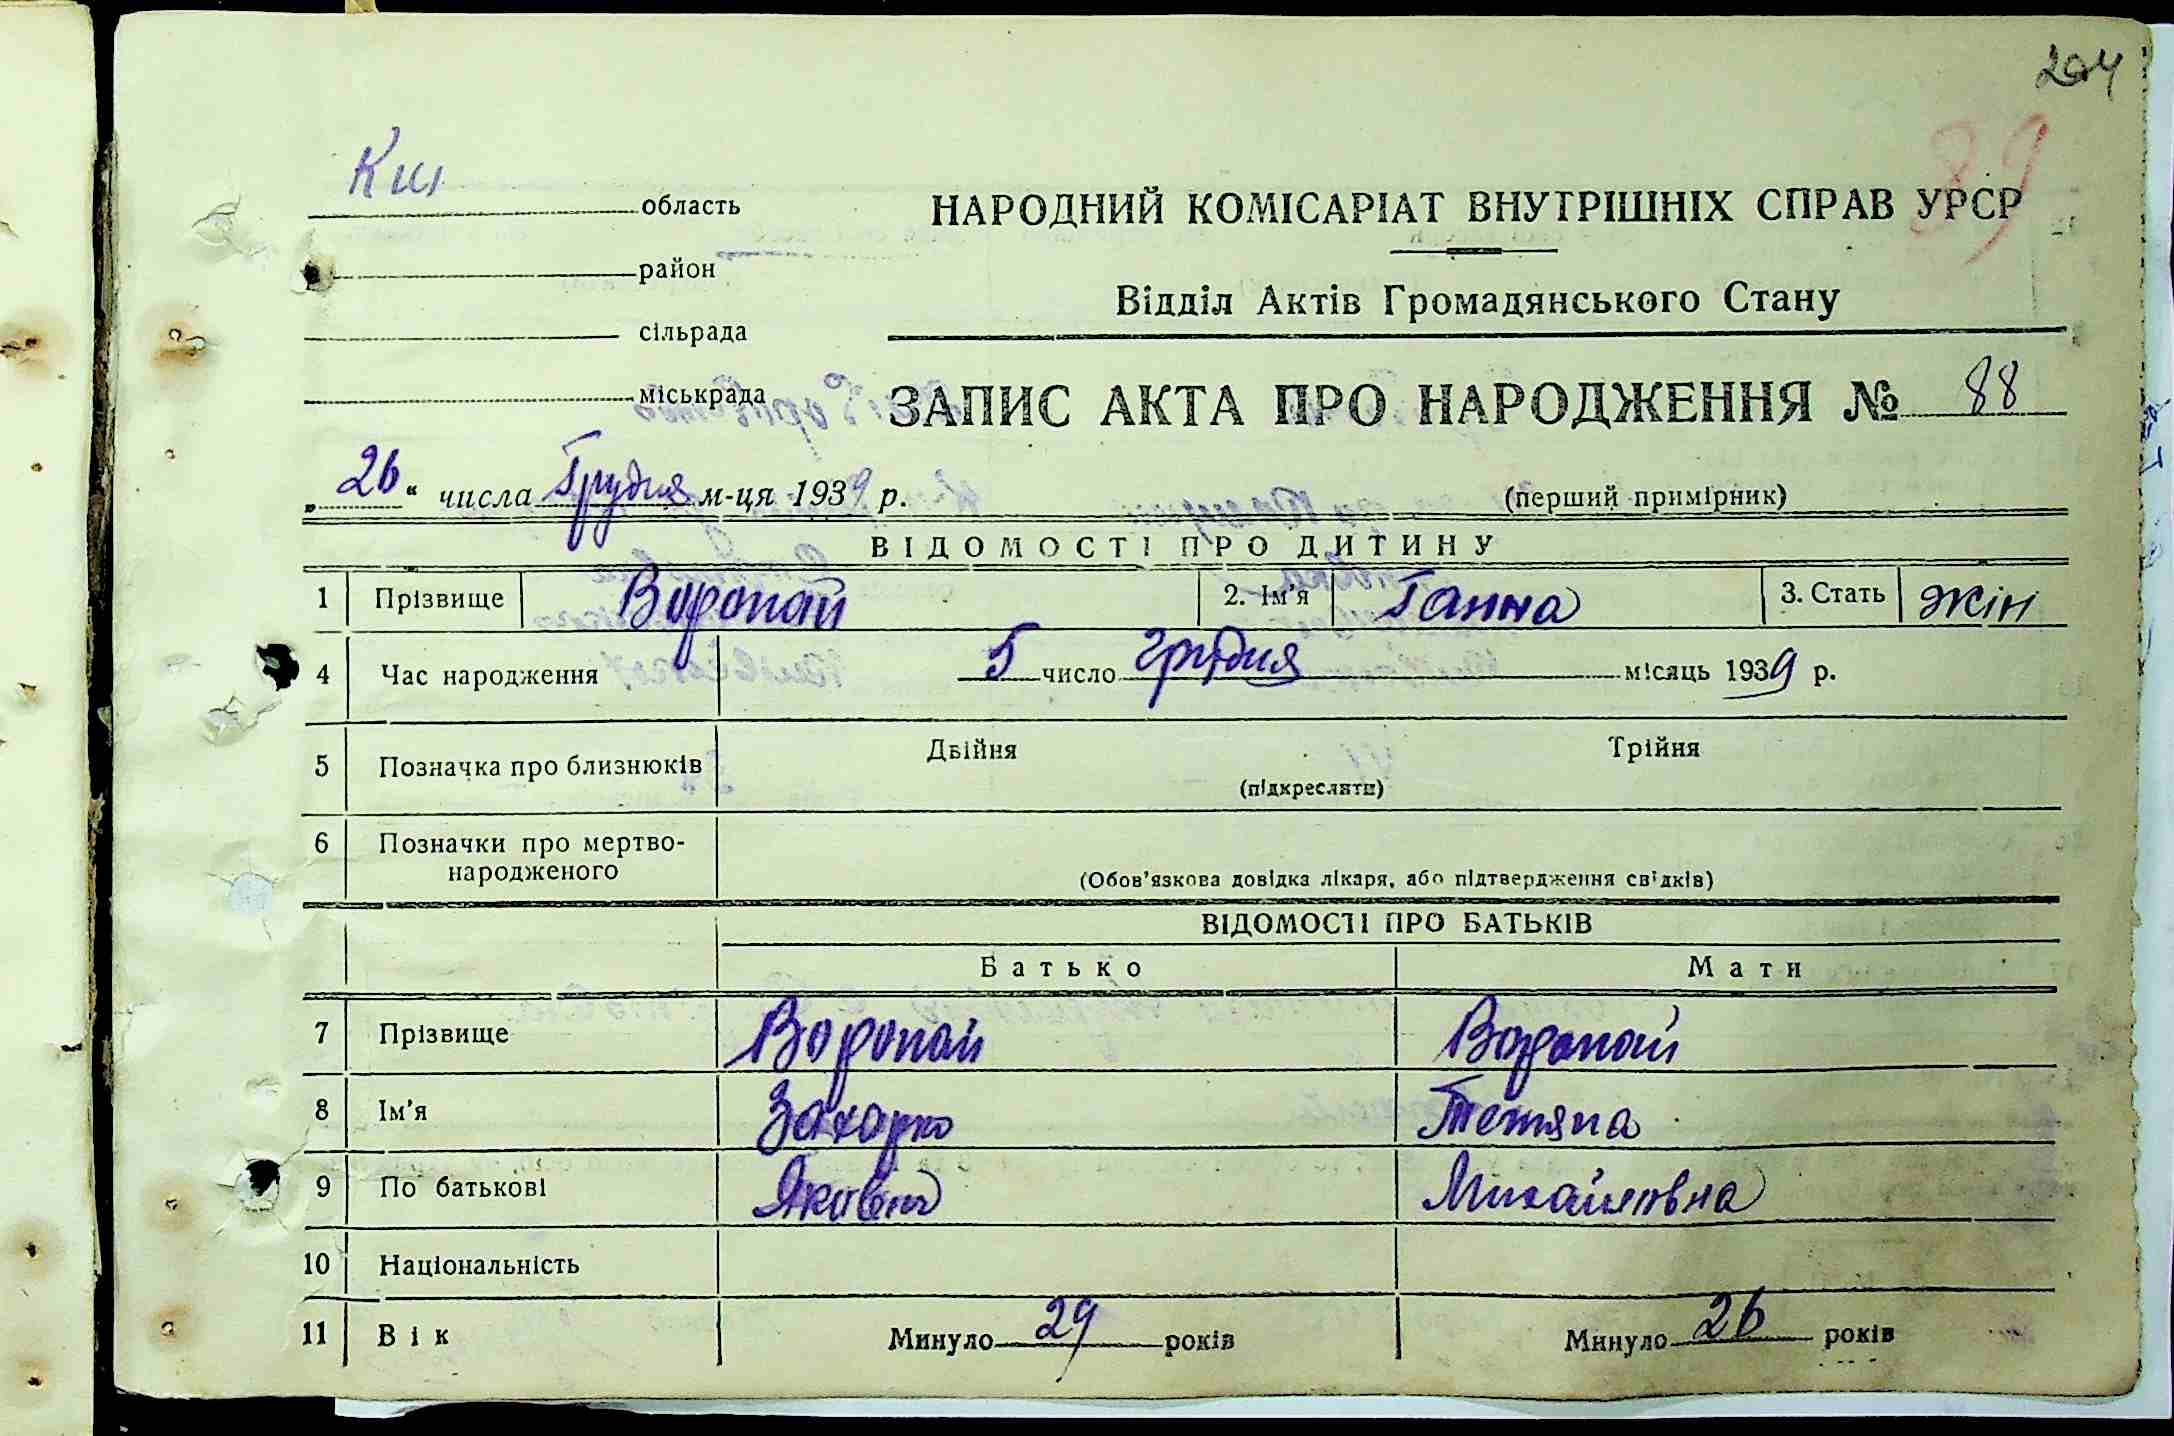 204
89
область
НАРОДНИЙ КОМІСАРІАТ ВНУТРІШНІХ СПРАВ УРСР
район
Відділ Актів Громадянського Стану
сільрада
міськрада
ЗАПИС АКТА ПРО НАРОДЖЕННЯ № 88
„26“ числа Грудня м-ця 1939 р.
(перший примірник)
ВІДОМОСТІ ПРО ДИТИНУ
1 Прізвище Воропай 2. Ім'я Ганна 3. Стать жін
4 Час народження 5 число грудня місяць 1939 р.
5 Позначка про близнюків Двійня Трійня
(підкресляти)
6 Позначки про мертво-
народженого
(Обов'язкова довідка лікаря, або підтвердження свідків)
ВІДОМОСТІ ПРО БАТЬКІВ
Батько Мати
7 Прізвище Воропай Воропай
8 Ім'я Захарко Тетяна
9 По батькові Михайловна
10 Національність
11 Вік Минуло 29 років Минуло 26 років